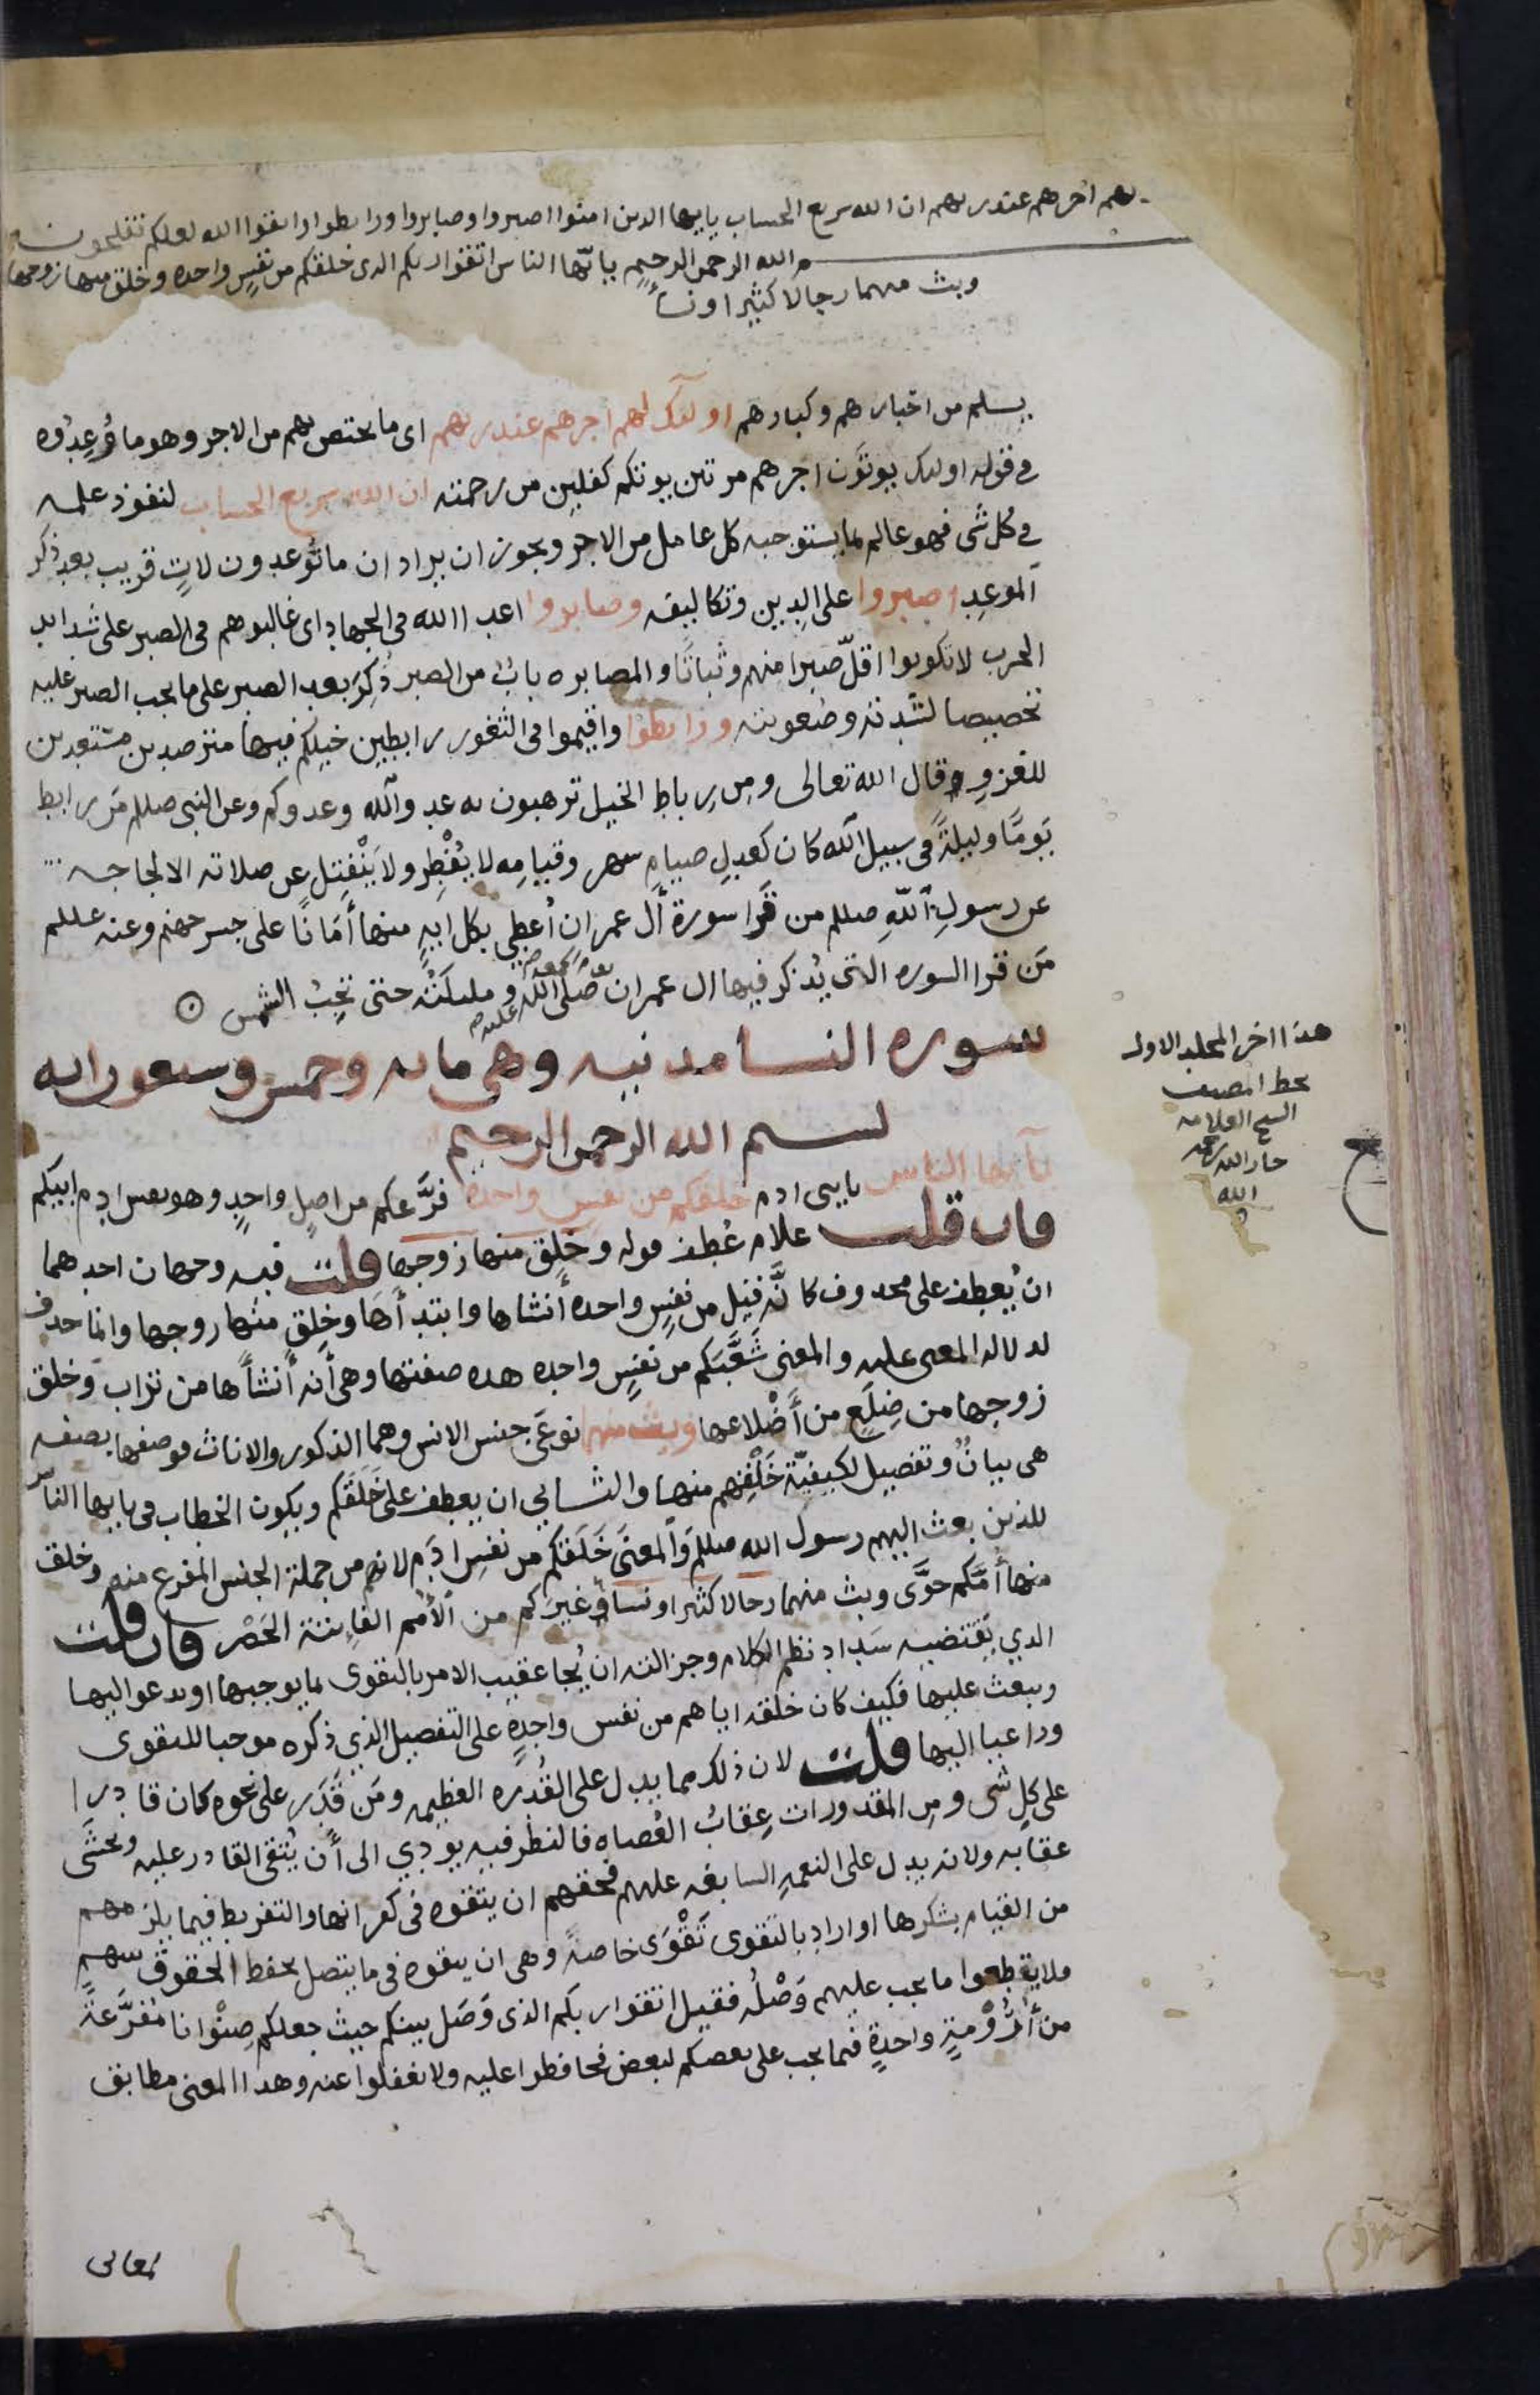 لهم اجرهم عند ربهم ان الله سريع الحساب يايها الذين امنوا اصبروا وصابروا ورابطوا واتقوا الله لعلكم تفلحون
الله الرحمن الرحيم يايّها الناس اتقوا ربكم الذي خلقكم من نفسٍ واحده وخلق منها زوجها
وبث منهما رجالا كثيرا ونسأ
يسلم من احبارهم وكبارهم اولئك لهم اجرهم عند ربهم اى ما يختص بهم من الاجر وهو ما وُعِدُوه
في قوله اوليك يوتَون اجرهم مرتين يوتكم كفلين من رحمته ان الله سريع الحساب لنفوذ علمه
في كل شى فهو عالم بما يستوجبه كل عامل من الاجر ويجوز ان يراد ان ما توعدون لاتٍ قريب بعد ذكر
الموعد اصبروا على الدين وتكاليفه وصابروا اعدا الله فى الجهاد اى غالبوهم فى الصبر على شدايد
الحرب لا تكونوا اقلّ صبرا منهم وثباتًا والمصابره بابٌ من الصبر ذُكِرَ بعد الصبر على ما يجب الصبر عليه
تخصيصا لشدته وصعوبته ورابطوا واقيموا فى الثغور رابطين خيلكم فيها مترصدين مستعدين
للغزوِ وقال الله تعالى ومن رباط الخيل ترهبون به عدو الله وعدوكم وعن النبى صللم مَن رابط
يَومًا وليلةً فى سبيل الله كان كعِدلِ صيام شهر وقيامِه لا يُفْطِر ولا يَنْفَتِل عن صلاته الا لحاجه
عن رسولِ اللّهِ صللم من قرا سورة أل عمران أُعطي بكل ايةٍ منها أمَانًا على جسر جهنم وعنه عللم
مَن قرا السوره التى يُذكر فيها ال عمران يوم الجمعة صَلَّى الله عليه وملىكَتُه حتى تَجِبُ الشمس
سوره النسا مدنيه وهى مايه وخمس وسبعون ايه
بسم الله الرحمن الرحيم
يآ ايها الناس يا بنى ادم خلقكم من نفس واحدة فَرَّعكم من اصلٍ واحدٍ وهو نفس ادم ابيكم
فان قلت علام عُطِف قوله وخَلق منها زوجها قلت فيه وجهان احدهما
ان يُعطف على محذوف كانَّه قيل من نفسٍ واحده أنشاها وابتدأَها وخلق منها زوجها وانما حذف
لدلاله المعنى عليه والمعنى شَعَّبَكم من نفسٍ واحده هذه صفتها وهى أنه أنشأَها من تراب وخلق
زوجها من ضِلَعٍ من أَضْلاعها وبث منهما نوعَى جنس الانس وهما الذكور والاناث فوصفها بصفه
هى بيانٌ وتفصيل لكيفيّة خَلْقِهم منها والثانى ان يعطف على خَلَقكم ويكون الخطاب فى يايها الناس
للذين بعث اليهم رسول الله صللم والمعنى خَلَقكم من نفسِ ادَم لانهم من جملة الجنس المفرع منه وخلق
منها أُمَّكم حوَّى وبث منهما رجالا كثيرا ونسا غيرَكم من الأمم الفايتة الحَصْر فان قلت
الذي يقتضيه سَداد نظم الكلام وجزالته ان يُجا عقيب الامر بالتقوى بما يوجبها او يدعو اليها
ويبعث عليها فكيف كان خلقه اياهم من نفس واحدةٍ على التفصيل الذي ذكره موجبا للتقوى
وداعيا اليها قلت لان ذلك مما يدل على القُدره العظيمه ومَن قَدَر على نحوه كان قادرا
على كل شى ومن المقدورات عِقابُ العُصاه فالنظر فيه يودي الى أن يُتقى القادر عليه ويخشَى
عقابه ولانه يدل على النعمه السابغه عليهم فحقهم ان يتقوه فى كفرانها والتفريط فيما يلزمهم
من القيام بشكرها او اراد بالتقوى تَقْوَى خاصةً وهى ان يتقوه فى ما يتصل بحفظ الحقوق بينهم
فلا يقطعوا ما يجب عليهم وَصْلُه فقيل اتقوا ربكم الذى وَصَل بينكم حيث جعلكم صِنْوانا مُفَرَّعَةً
من أَرُوْمةٍ واحدةٍ فيما يجب على بعضكم لبعض فحافظوا عليه ولا تغفلوا عنه وهذا المعنى مطابق
لمعانى
هذا اخر المجلد الاول
بخط المصنف
الشيخ العلامه
جار الله رحمه
الله